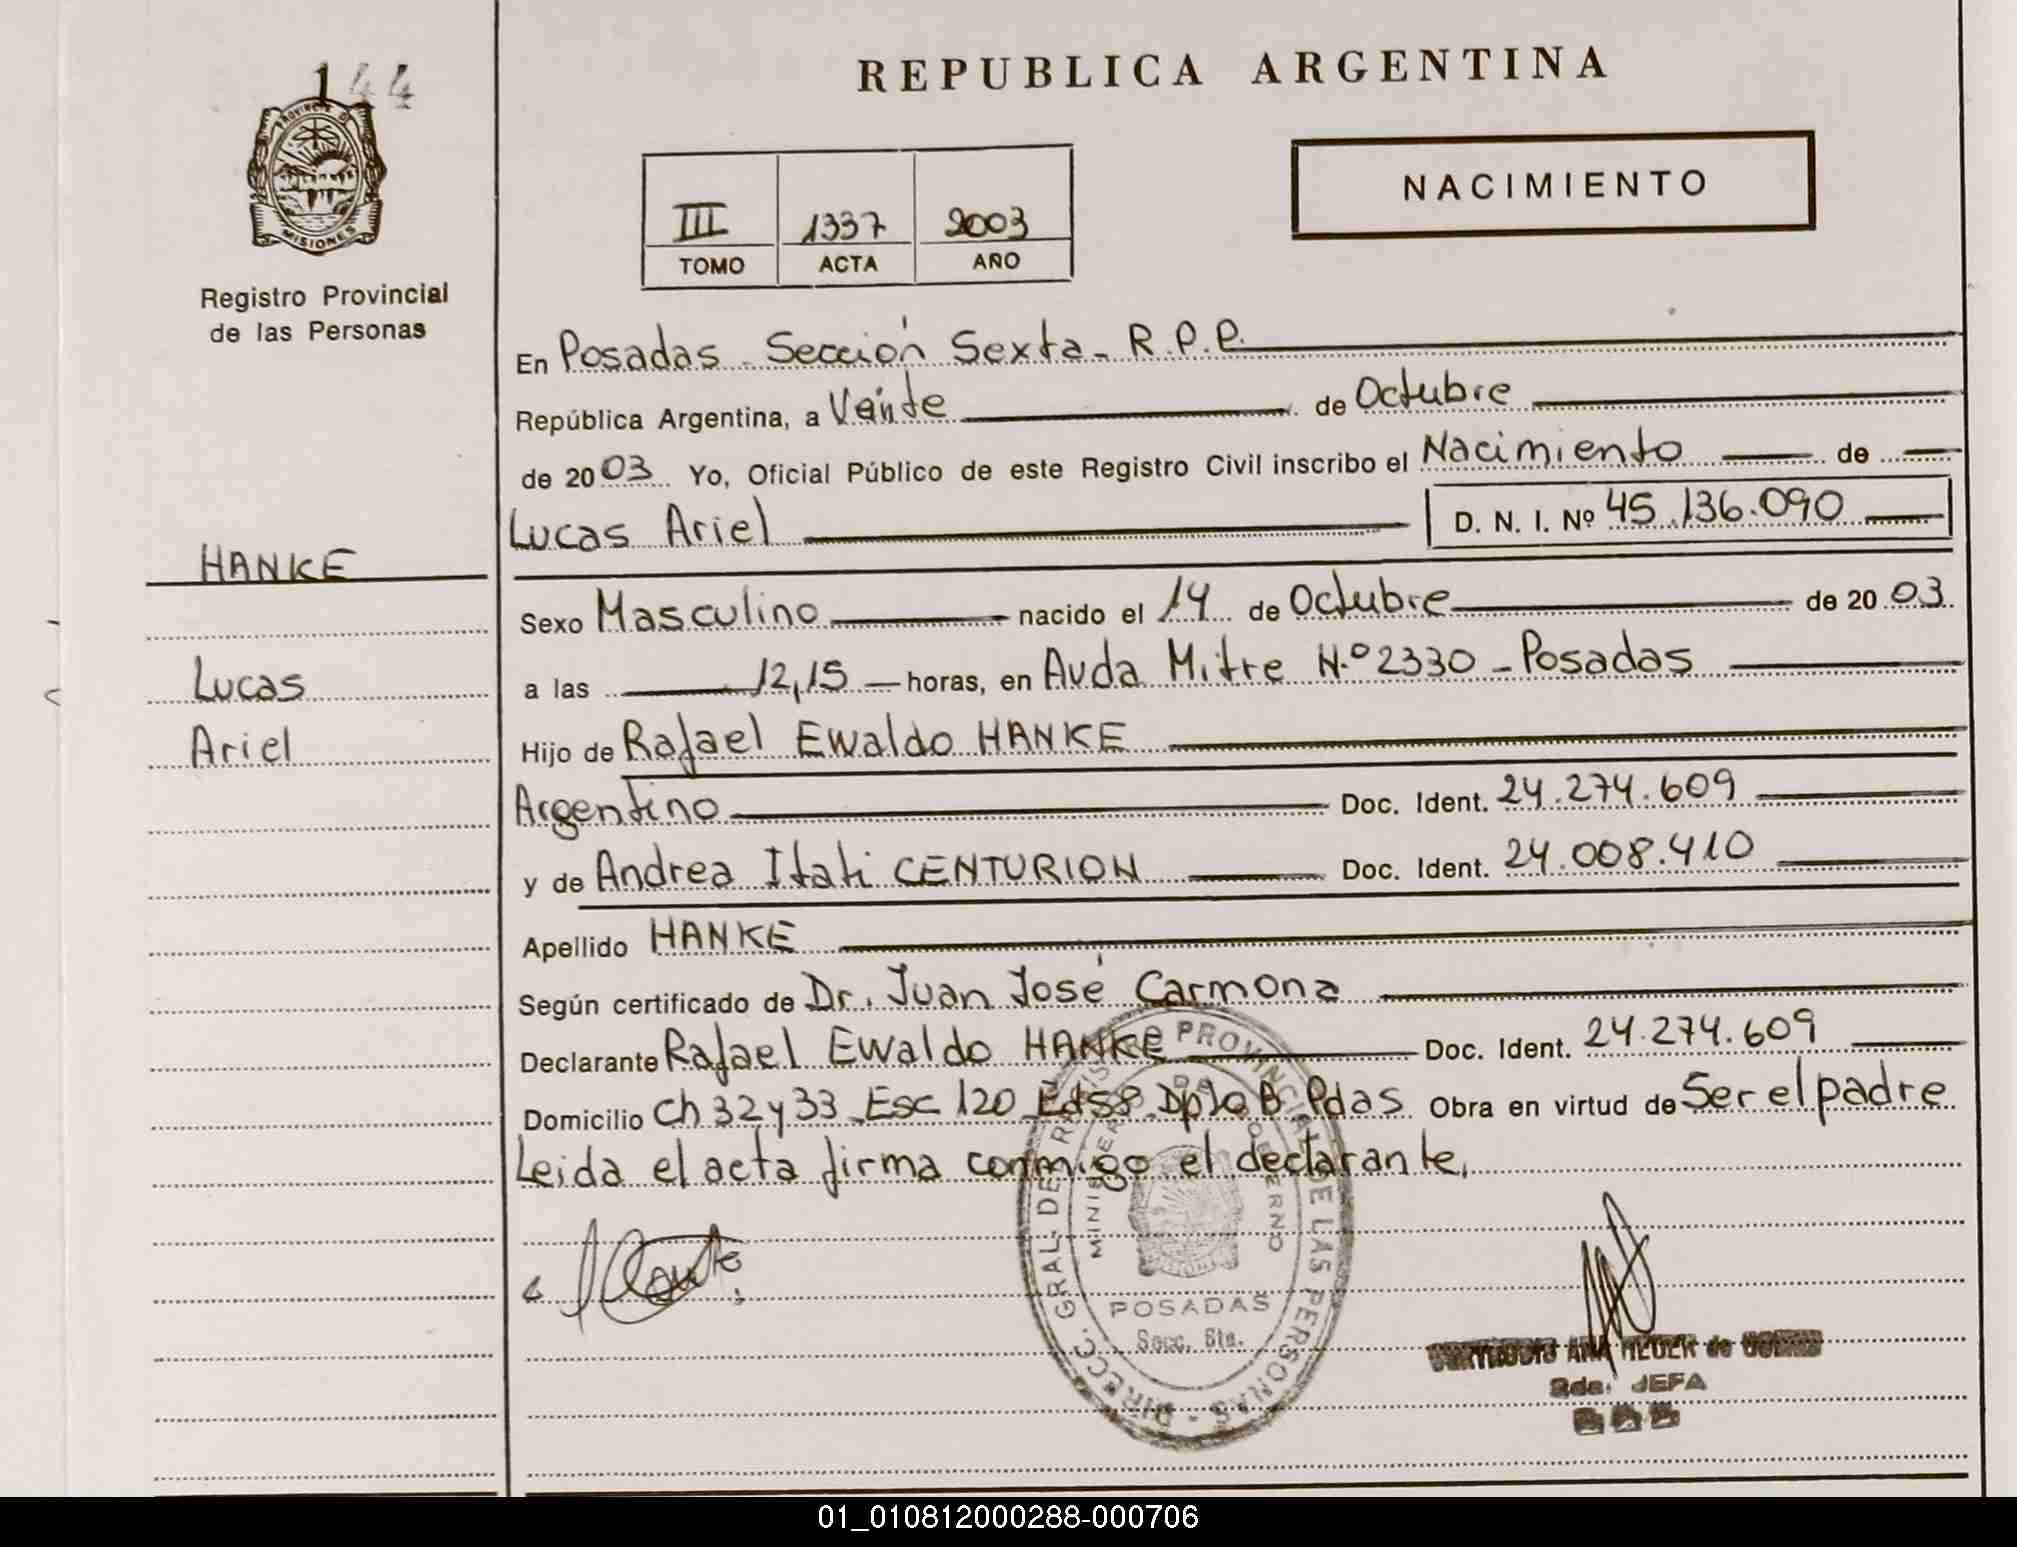 144
PROVINCIA DE
MISIONES
Registro Provincial
de las Personas
HANKE
Lucas
Ariel
REPUBLICA ARGENTINA
III 1337 2003
TOMO ACTA AÑO
NACIMIENTO
En Posadas - Sección Sexta - R.P.P.
República Argentina, a Veinte de Octubre
de 2003 Yo, Oficial Público de este Registro Civil inscribo el Nacimiento de
Lucas Ariel D. N. I. Nº 45.136.090
Sexo Masculino nacido el 14 de Octubre de 2003
a las 12,15 horas, en Avda Mitre N.º 2330 - Posadas
Hijo de Rafael Ewaldo HANKE
Argentino Doc. Ident. 24.274.609
y de Andrea Itati CENTURION Doc. Ident. 24.008.410
Apellido HANKE
Según certificado de Dr. Juan José Carmona
Declarante Rafael Ewaldo HANKE Doc. Ident. 24.274.609
Domicilio Ch 32 y 33 Esc 120 B Pdas Obra en virtud de Ser el padre
Leida el acta firma conmigo el declarante,
DIRECC. GRAL. DE REGISTRO PROVINCIAL DE LAS PERSONAS
MINISTERIO DE GOBIERNO
POSADAS
Secc. 6ta.
ANA de
2da. JEFA
01_010812000288-000706